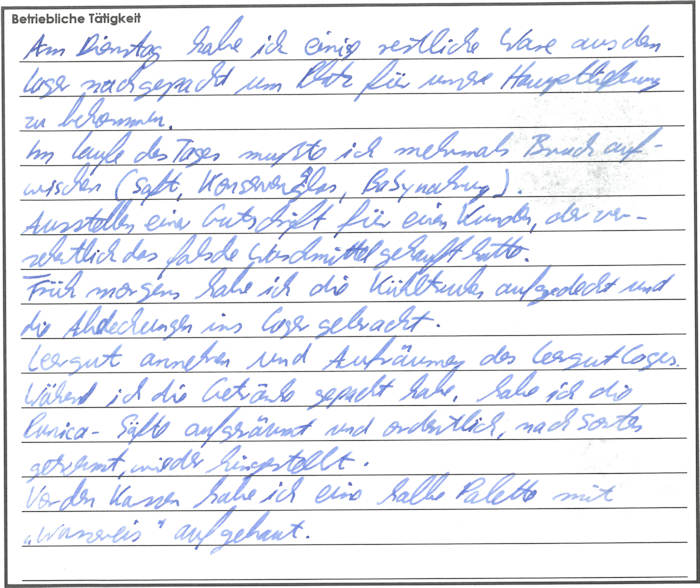 Betriebliche Tätigkeit
Am Dienstag habe ich einige restliche Ware aus dem
Lager nachgepackt um Platz für unsere Hauptlieferung
zu bekommen.
Im laufe des Tages mußte ich mehrmals Bruch auf-
wischen (Saft, Konservenglas, Babynahrung).
Ausstellen einer Gutschrift für einen Kunden, der ver-
sehentlich das falsche Waschmittel gekauft hatte.
Früh morgens habe ich die Kühltruhen aufgedeckt und
die Abdeckungen ins Lager gebracht.
Leergut annehmen und Aufräumung des Leergut Lagers.
Während ich die Getränke gepackt habe, habe ich die
Punica - Säfte aufgeräumt und ordentlich, nach Sorten
getrennt, wieder hingestellt.
Vor den Kassen habe ich eine halbe Palette mit
„Wassereis" aufgebaut.